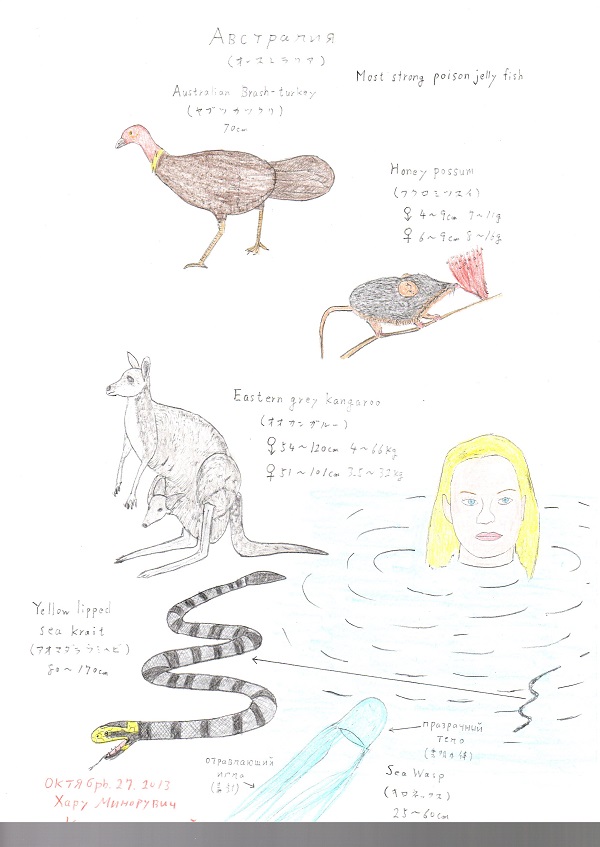 Австралия
(オーストラリア)
Most strong poison jelly fish
Australian Brash-turkey
(ヤブツカツクリ)
70cm
Honey possum
(フクロミツスイ)
4~9cm 7~11g
♀ 6~9cm 8~16g
Eastern grey kangaroo
(オオカンガルー)
54~120cm 4~66kg
♀ 51~101cm 3.5~32kg
Yellow lipped
sea krait
(アオマダラウミヘビ)
80~170cm
прозрачный
тело
отравляющий
игло
Sea Wasp
(キロネックス)
25~60cm
Октябрь. 27. 2013
Хару Минорувич